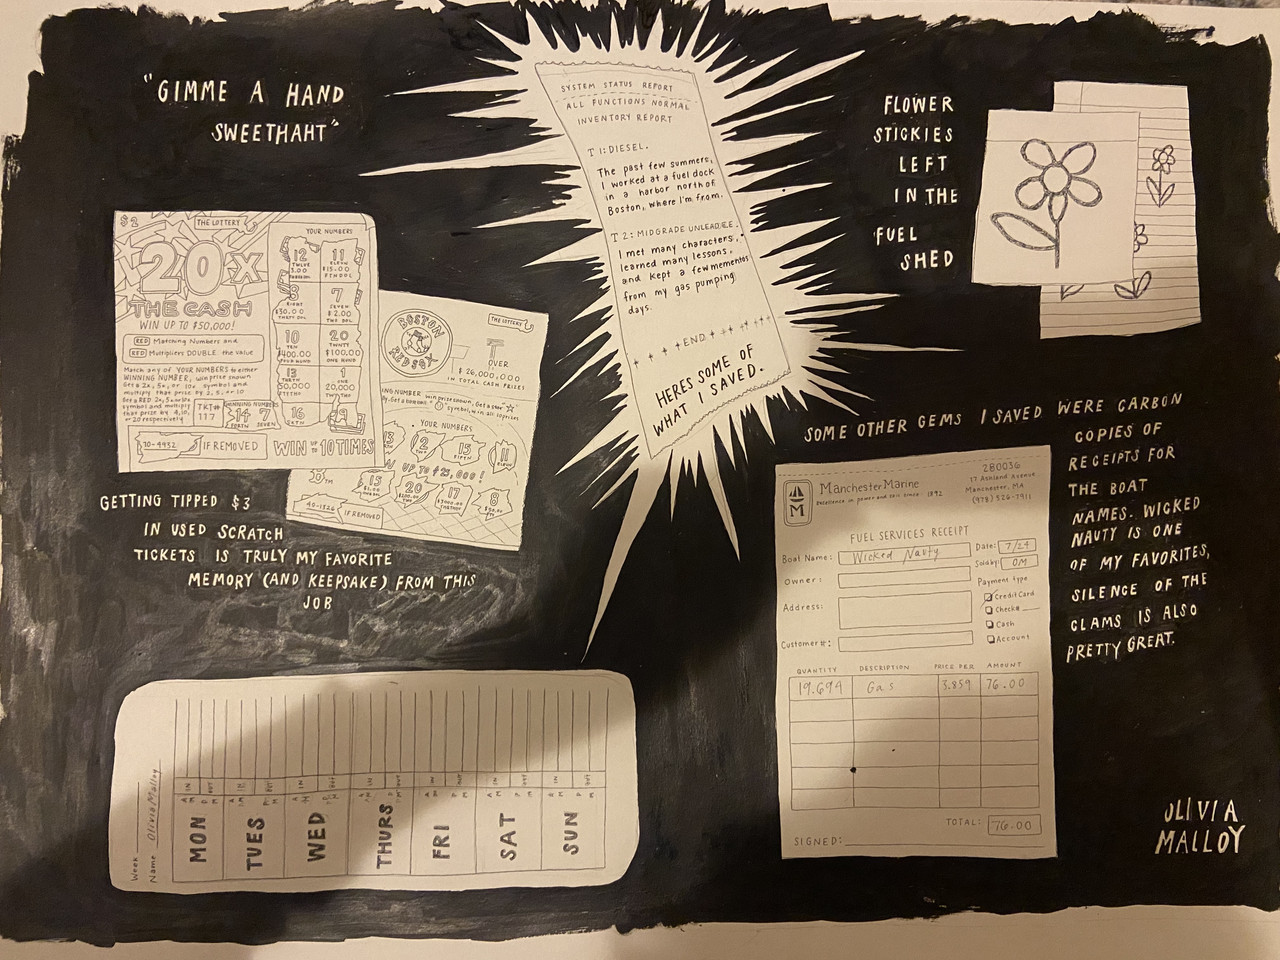 "GIMME A HAND
SWEETHAHT"
SYSTEM STATUS REPORT
ALL FUNCTIONS NORMAL
INVENTORY REPORT
T1: DIESEL.
The past few summers,
I worked at a fuel dock
in a harbor north of
Boston, where I'm from.
T2: MIDGRADE UNLEADEE.
I met many characters,
learned many lessons,
and kept a few mementos
from my gas pumping
days.
+ + + + END + + + + +
HERES SOME OF
WHAT I SAVED.
FLOWER
STICKIES
LEFT
IN THE
FUEL
SHED
$2
THE LOTTERY
20X
THE CASH
WIN UP TO $50,000!
RED Matching Numbers and
RED Multipliers DOUBLE the value
Match any of YOUR NUMBERS to either
WINNING NUMBER, win prize shown
Get a 2x, 5x, or 10x symbol and
multiply that prize by 2, 5, or 10
Get a RED 2x, 5x or 10x
symbol and multiply
that prize by 4, 10,
or 20 respectively
TKT#
117
WINNING NUMBERS
14 7
FORTN SEVEN
YOUR NUMBERS
12 11
TWLVE ELEVN
3.00 $15.00
FTNDOL
8 7
EIGHT SEVEN
$30.00 $2.00
THRTY DOL TWO DOL
10 20
TEN TWNTY
$400.00 $100.00
FOUR HUND ONE HUND
13 1
THRTN ONE
50,000 20,000
16 19
SXTN
10-4932 IF REMOVED
WIN UP TO 10 TIMES
BOSTON
RED SOX
THE LOTTERY
OVER
$26,000,000
IN TOTAL CASH PRIZES
YOUR NUMBERS
13 2 15 11
FIFTN ELEVN
UP TO $25,000!
15 20 17 8
40-1826 IF REMOVED
GETTING TIPPED $3
IN USED SCRATCH
TICKETS IS TRULY MY FAVORITE
MEMORY (AND KEEPSAKE) FROM THIS
JOB
SOME OTHER GEMS I SAVED WERE CARBON
COPIES OF
RECEIPTS FOR
THE BOAT
NAMES. WICKED
NAUTY IS ONE
OF MY FAVORITES,
SILENCE OF THE
CLAMS IS ALSO
PRETTY GREAT.
M
Manchester Marine
Excellence in power and sail since 1892
280036
17 Ashland Avenue
Manchester, MA
(978) 526-7911
FUEL SERVICES RECEIPT
Boat Name: Wicked Nauty
Date: 7/24
Sold by: OM
Owner:
Payment type
Credit Card
Address:
Check#
Cash
Customer#:
Account
QUANTITY DESCRIPTION PRICE PER AMOUNT
19.694 Gas 3.859 76.00
TOTAL: 76.00
SIGNED:
Week
Name Olivia Malloy
MON TUES WED THURS FRI SAT SUN
AM IN PM OUT
AM IN PM OUT
AM IN PM OUT
AM IN PM OUT
AM IN PM OUT
AM IN PM OUT
AM IN PM OUT
OLIVIA
MALLOY